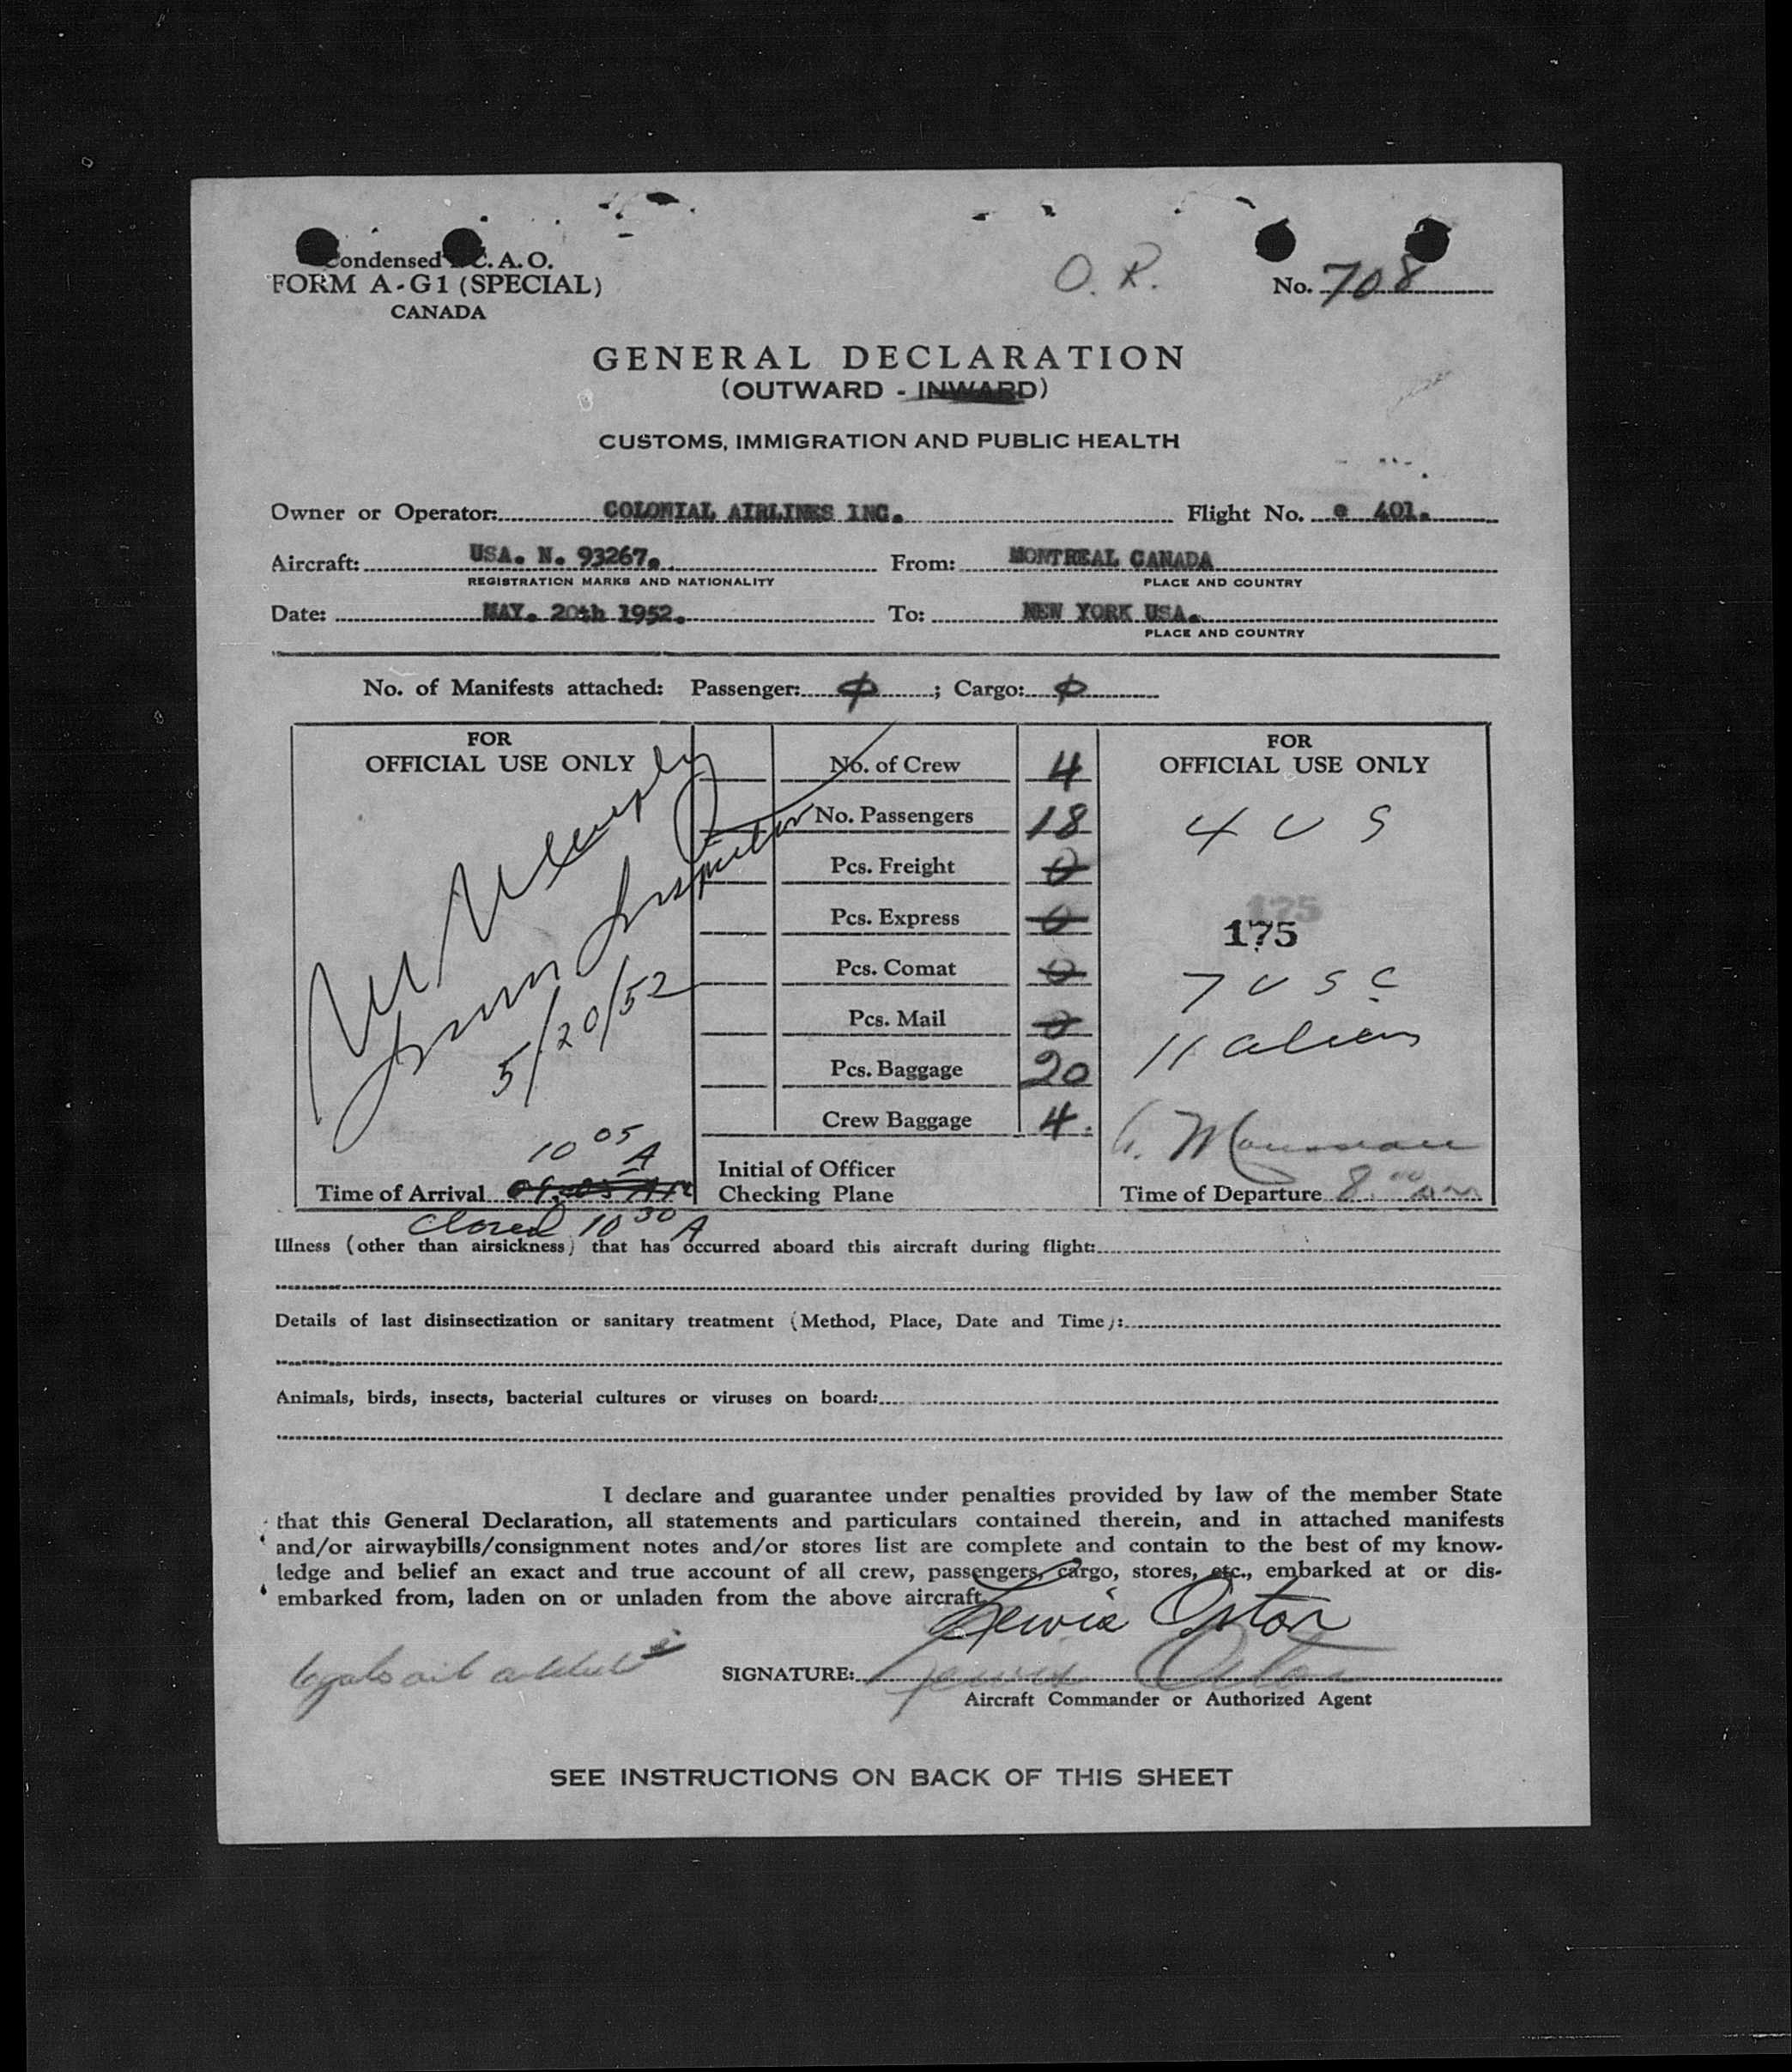 Condensed I.C.A.O.
FORM A-G1 (SPECIAL)
CANADA
O. R.
No. 708
GENERAL DECLARATION
(OUTWARD - INWARD)
CUSTOMS, IMMIGRATION AND PUBLIC HEALTH
Owner or Operator: COLONIAL AIRLINES INC. Flight No. 401.
Aircraft: USA. N. 93267. From: MONTREAL CANADA
REGISTRATION MARKS AND NATIONALITY PLACE AND COUNTRY
Date: MAY. 20th 1952. To: NEW YORK USA.
PLACE AND COUNTRY
No. of Manifests attached: Passenger: ; Cargo:
FOR
OFFICIAL USE ONLY
Immn. Inspector
5/20/52
10 05 A
Time of Arrival
Closed 10 30 A
No. of Crew 4
No. Passengers 18
Pcs. Freight 0
Pcs. Express 0
Pcs. Comat 0
Pcs. Mail 0
Pcs. Baggage 20
Crew Baggage 4.
Initial of Officer
Checking Plane
FOR
OFFICIAL USE ONLY
4 U S
175
175
7 U S C
11 aliens
Time of Departure 8.00 am
Illness (other than airsickness) that has occurred aboard this aircraft during flight:
Details of last disinsectization or sanitary treatment (Method, Place, Date and Time):
Animals, birds, insects, bacterial cultures or viruses on board:
I declare and guarantee under penalties provided by law of the member State
that this General Declaration, all statements and particulars contained therein, and in attached manifests
and/or airwaybills/consignment notes and/or stores list are complete and contain to the best of my know-
ledge and belief an exact and true account of all crew, passengers, cargo, stores, etc., embarked at or dis-
embarked from, laden on or unladen from the above aircraft.
Lewis Oston
SIGNATURE: Lewis Oston
Aircraft Commander or Authorized Agent
SEE INSTRUCTIONS ON BACK OF THIS SHEET